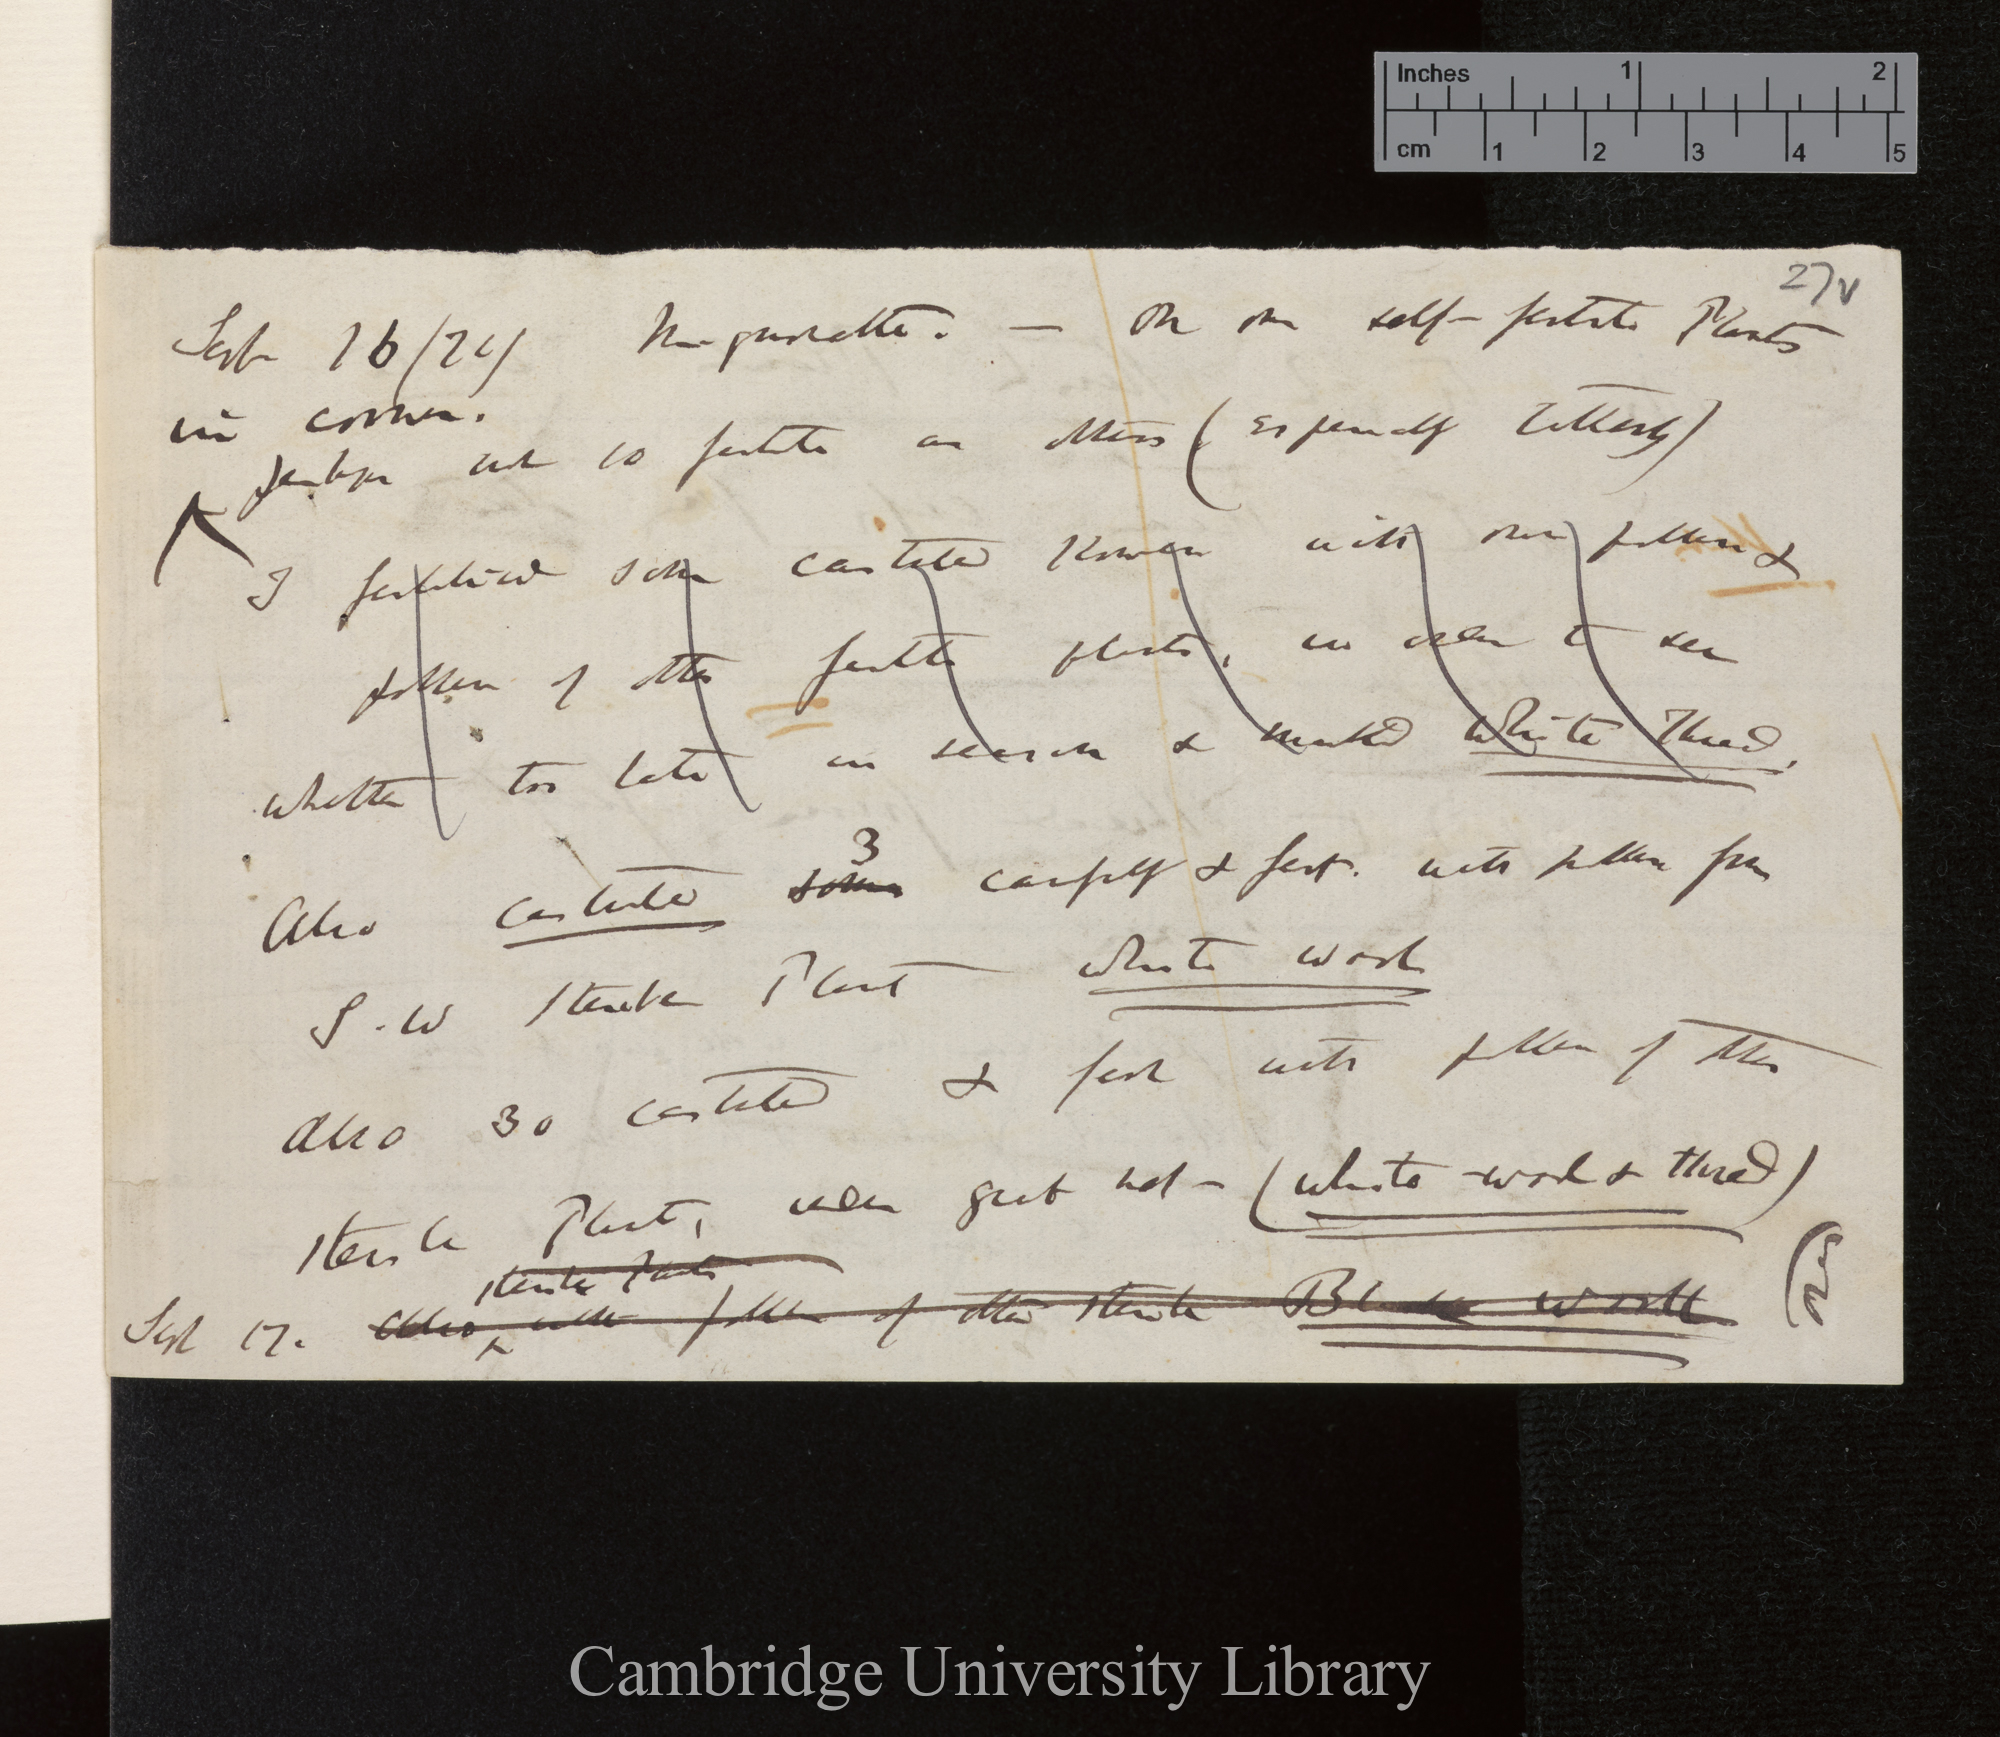 Inches 1 2
cm 1 2 3 4 5
27v
Sept 16 / Mignonette. — On one self-fertile Plants
in corner.
perhaps not so fertile as others (especially latterly)
I fertilised some castrated flowers with own pollen &
pollen of other fertile plants, in order to see
whether too late in season & marked white thread.
Also castrated some 3 carefully & fert. with pollen from
S.W sterile Plant white wool
Also 30 castrated & fert with pollen of other
sterile Plant, under great net — (white wool & thread)
sterile Plants
Sept 17. Also with pollen of other sterile Black wool
Cambridge University Library